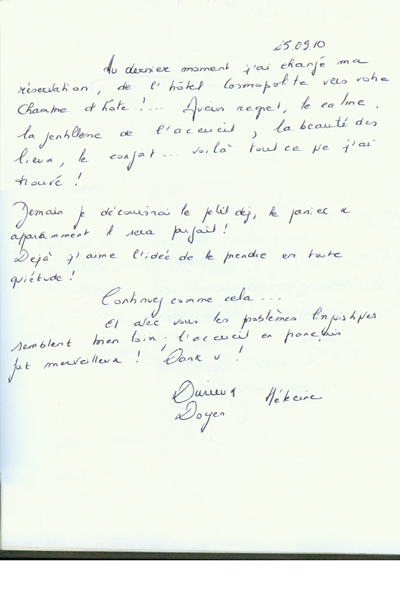 25.09.10
Au dernier moment j'ai changé ma
réservation, de l'hôtel Cosmopolite vers votre
Chambre d'hôte !... Aucun regret, le calme,
la gentillesse de l'accueil, la beauté des
lieux, le confort... voilà tout ce que j'ai
trouvé !
Demain je découvrirai le petit dej, le panier
apparemment il sera parfait !
Déjà j'aime l'idée de le prendre en toute
quiétude !
Continuez comme cela...
Et avec vous les problèmes linguistiques
semblent bien loin, l'accueil en français
fut merveilleux ! Dank u !
Doyen